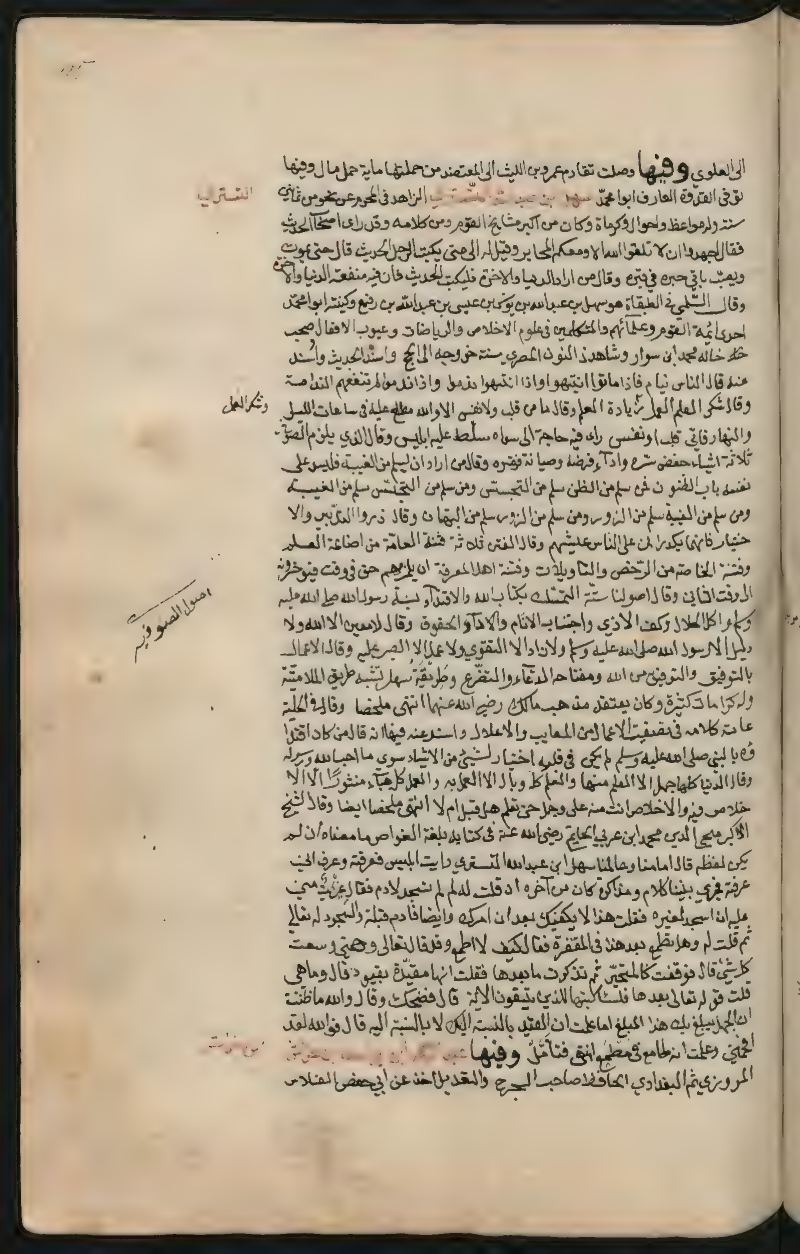 الى العلوي وفيها وصلت تقادم عمرو بن الليث الى المعتضد من جملتها ماية حمل مال وفيها
توفى القدوة العارف ابو محمد سهل بن عبد الله التستري الزاهد فى المحرم عن نحو من ثمانين
التستري
سنة وله مواعظ واحوال وكرماة وكان من اكبر مشايخ القوم ومن كلامه وقد راى اصحاب الحديث
فقال اجهدوا ان لا تلقوا الله الا ومعكم المحابر وقيل له الى متى يكتب الرجل الحديث قال حتى يموت
ويصب باقي حبره فى قبره وقال من اراد الدنيا والاخرة فليكتب الحديث فان فيه منفعة الدنيا والاخرة
وقال السلمي فى الطبقاة هو سهل بن عبد الله بن يونس بن عيسى بن عبد الله بن رفيع وكنيته ابو محمد
احد ائمة القوم وعلمائهم والمتكلمين فى علوم الاخلاص والرياضات وعيوب الافعال صحب
خاله محمد ابن سوار وشاهد ذا النون المصري سنة خروجه الى الحج واسند الحديث واسند
عنه قال الناس نيام فاذا ماتوا انتبهوا واذا انتبهوا ندموا واذا ندموا لم تنفعهم الندامة
وقال شكر العلم العمل وشكر العمل زيادة العلم وقال ما من قلب ولا نفس الا والله مطلع عليه فى ساعات الليل
وشكر العمل
والنهار فايما قلب او نفس راى فيه حاجة الى سواه سلط عليه ابليس وقال الذي يلزم الصوفى
ثلاثة اشياء حفض سره واداء فرضه وصيانة فقره وقال من اراد ان يسلم من الغيبة فليسد على
نفسه باب الظنون فمن سلم من الظن سلم من التجسس ومن سلم من التجسس سلم من الغيبة
ومن سلم من الغيبة سلم من الزور ومن سلم من الزور سلم من البهتان وقال ذروا التدبير والا
ختيار فانهما يكدران على الناس عليشهم وقال الفتن ثلاثة فتنة العامة من اضاعة العلم
وفتنة الخاصة من الرخص والتاويلات وفتنة اهل المعرفة ان يلزمهم حق فى وقت فيؤخرونه
الى وقت الثاني وقال اصولنا ستة التمسك بكتاب الله والاقتداء بسنة رسول الله صلى الله عليه
اصول الصوفيه
وسلم واكل الحلال وكف الاذى واجتناب الاثام والاداء الحقوق وقال لا معين الا الله ولا
دليل الا رسول الله صلى الله عليه وسلم ولا زاد الا التقوى ولا عمل الا الصبر عليه وقال الاعمال
بالتوفيق والتوفيق من الله ومفتاحه الدعاء والتضرع وطريقة سهل تشبه طريق الملامتية
وله كرامات كثيرة وكان يعتقد مذهب مالك رضي الله عنهما انتهى ملخصا وقال فى الحلية
عامة كلامه فى تصفية الاعمال من المعايب والاعلال واسند عنه فيها انه قال من كان اقتدا
وه بالنبي صلى الله عليه وسلم لم يكن فى قلبه اختيار لشئ من الاشياء سوى ما احب الله ورسوله
وقال الدنيا كلها جهل الا العلم منها والعلم كله وبال الا العمل به والعمل كله هباء منثورا الا الا
خلاص فيه والاخلاص انت منه على وجل حتى تعلم هل قبل ام لا انتهى ملخصا ايضا وقال الشيخ
الاكبر محيي الدين محمد ابن عربي الحاتمي رضي الله عنه فى كتابه بلغة الغواص ما معناه ان لم
يكن لفظه قال امامنا وعالمنا سهل ابن عبد الله التستري رايت ابليس فعرفته وعرف اني
عرفته فجرى بيننا كلام ومذاكرة كان من آخره ان قلت له لم لم تسجد لادم فقال غيرة مني
عليه ان اسجد لغيره فقلت هذا لا يكفيك بعد ان امرك وايضا فادم قبلة والسجود له تعالى
ثم قلت له وهل تطمع بعد هذا فى المغفرة فقال كيف لا اطمع وقد قال تعالى ورحمتي وسعت
كل شئ قال فوقفت كالمتحير ثم تذكرت ما بعدها فقلت انها مقيدة بقيود قال وما هي
قلت قوله تعالى بعدها فسأكتبها للذين يتقون الاية قال فضحك وقال والله ما ظننت
ان الجهل يبلغ بك هذا المبلغ اما علمت ان القيد بالنسبة اليك لا بالنسبة اليه قال فوالله لقد
افحمني وعلمت انه طامع فى مطمع انتهى فتأمل وفيها
المروزي ثم البغدادي الحافظ صاحب الجرح والتعديل اخذ عن ابي حفص الفلاس